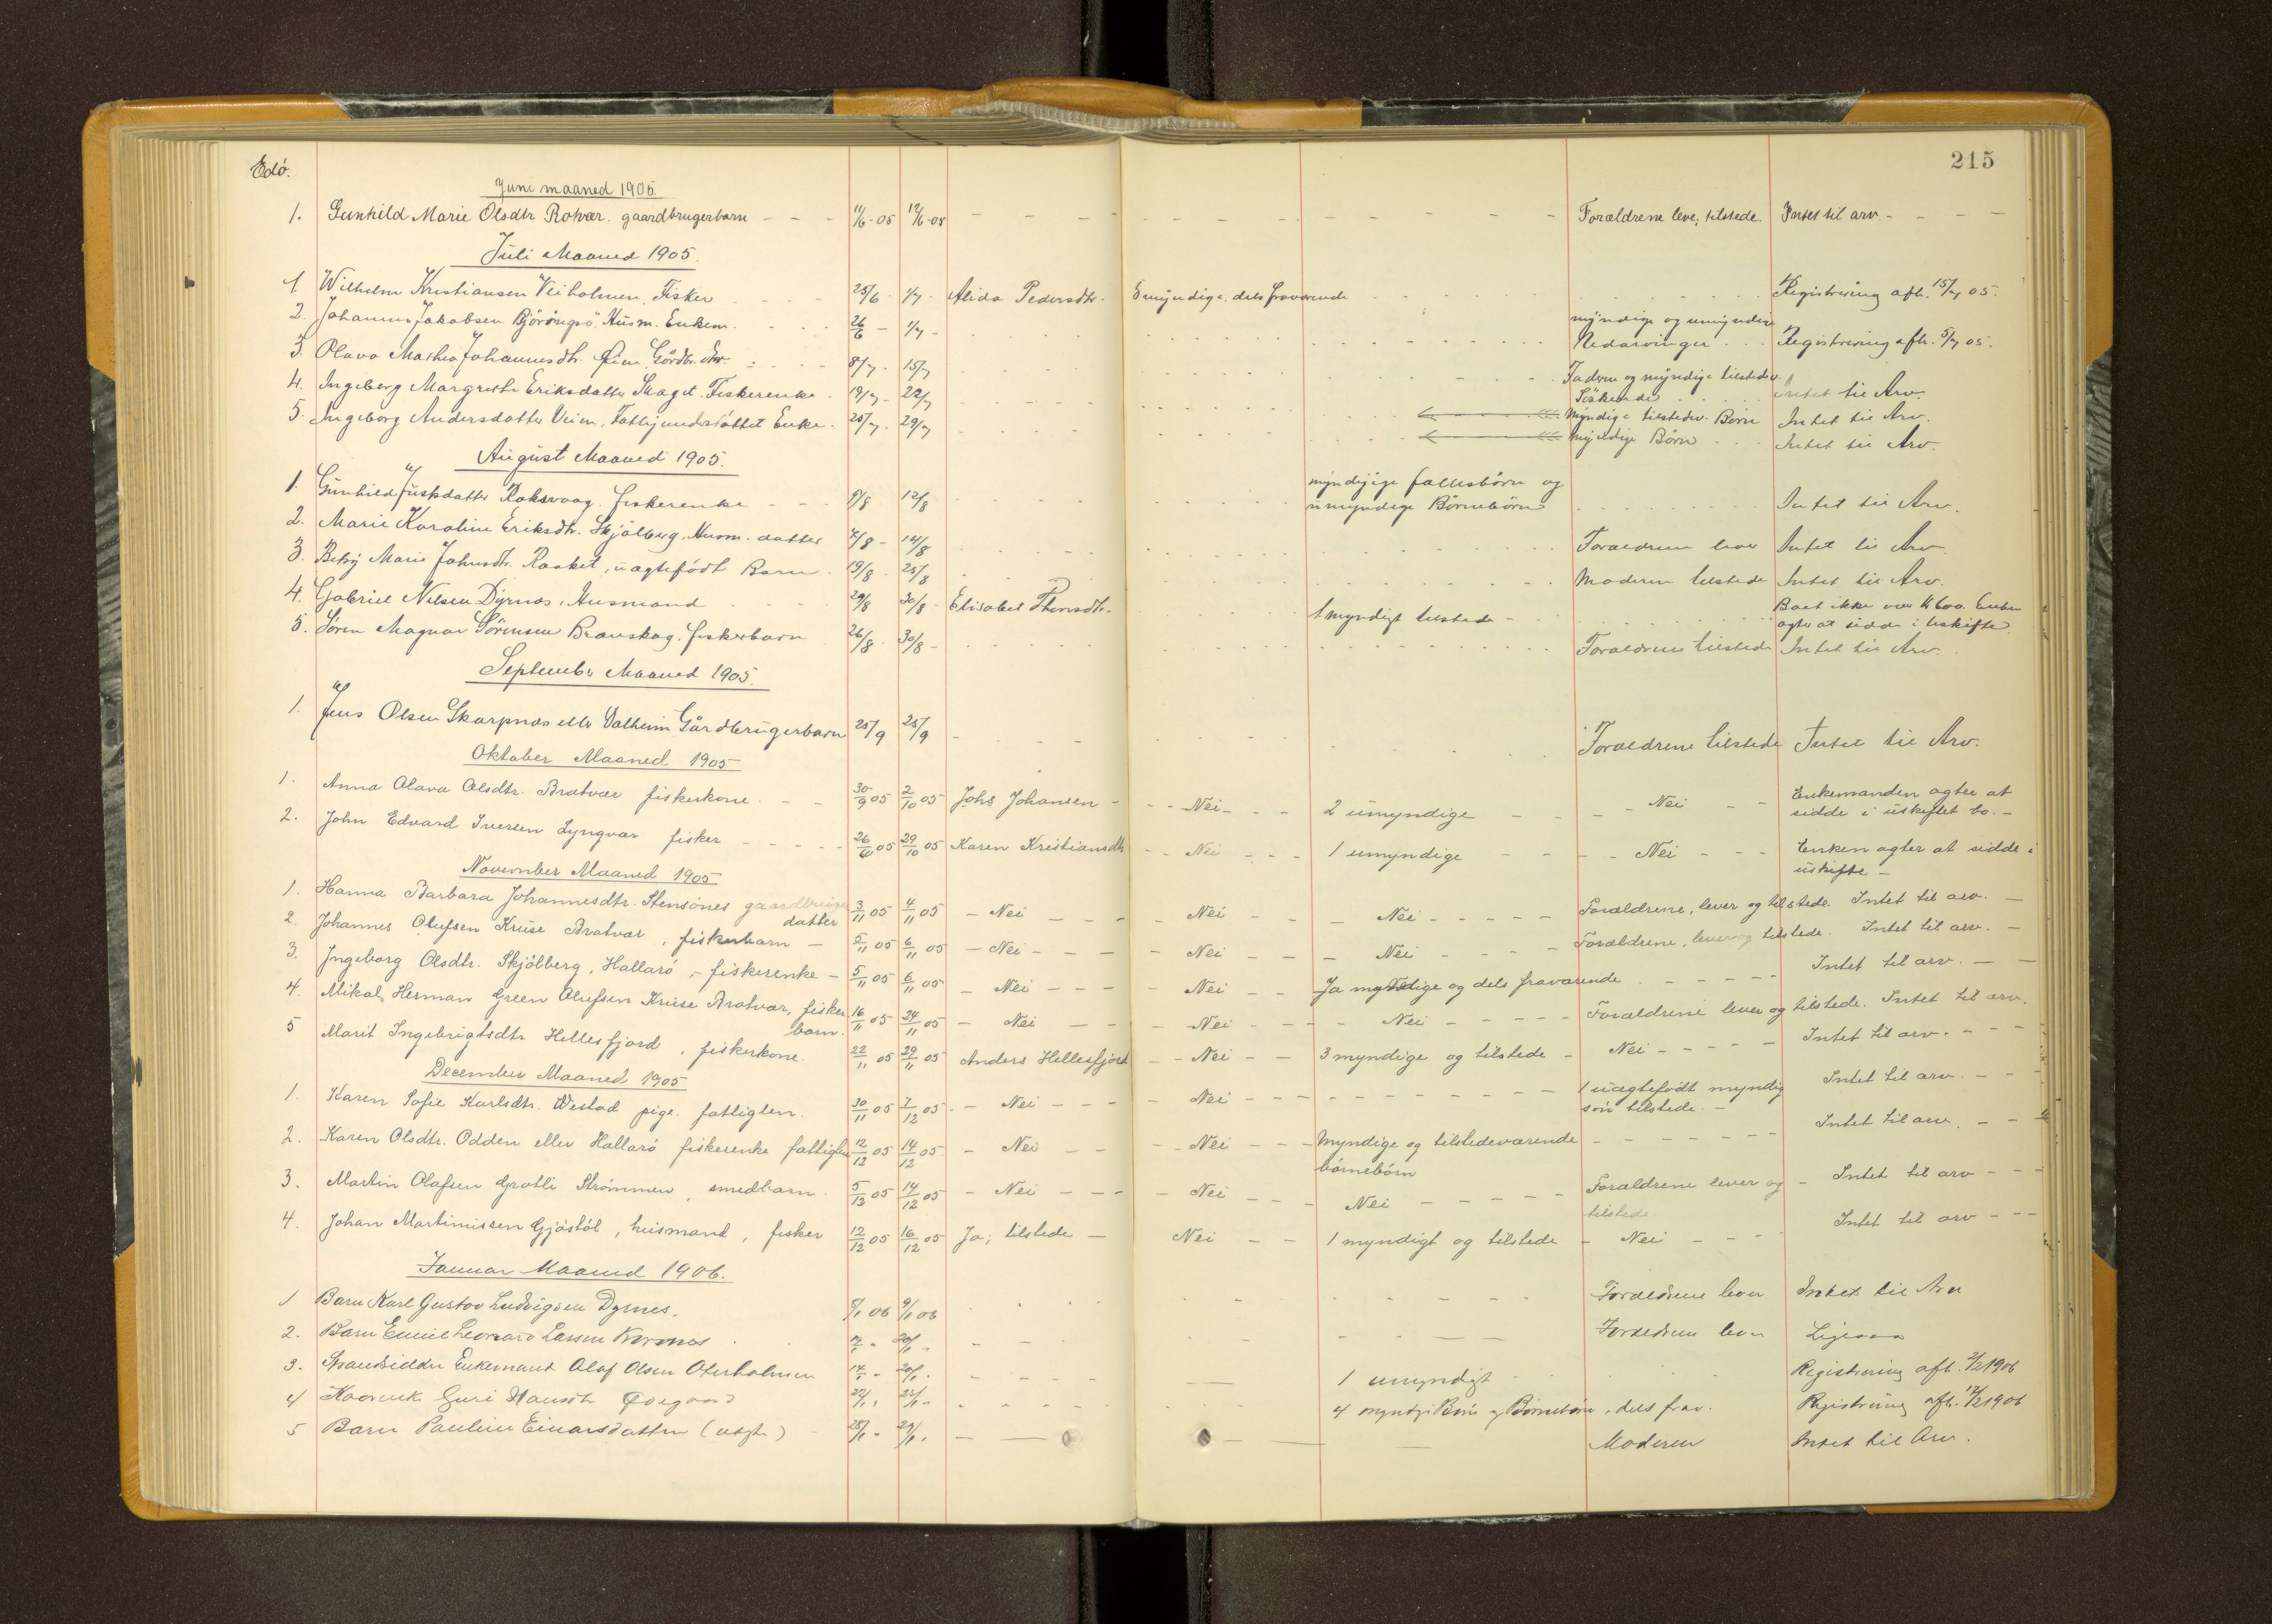 Edö.
215
Juni maaned 1905.
1. Gunhild Marie Olsdtr Rotvær. gaardbrugerbarn - - - 11/6-05 12/6-05 - - - Forældrene leve; tilstede. Intet til arv. - - - -
Juli Maaned 1905.
1. Wilhelm Kristiansen Veiholmen, Fisker 25/6 - 1/7 - Alida Pedersdtr. 5 myndige, dels fraværende Registrering afh. 15/7 05.
2. Johannes Jakobsen Husm. Enkem. 26/6 - 1/7 - myndige og umyndige
Nedarvinger Registrering afh. 5/7 05.
3. Olava Johannesdtr. 8/7 - 15/7 Faderen og myndige tilstedev.
Söskende Intet til Arv.
4. Ingeborg Margrethe Eriksdatter Skaget. Fiskerenke 19/7 - 22/7 Myndige tilstedev. Börn Intet til Arv.
5. Ingeborg Andersdatter Veien, Fattigunderstöttet Enke. 25/7 - 29/7 Myndige Börn Intet til Arv.
August Maaned 1905.
1. Gunhild datter Roksvaag. fiskerenke 9/8 12/8 myndige fællesbörn og
umyndige Börnebörn Intet til Arv.
2. Marie Karoline Eriksdtr. Skjölberg, Husm. datter 7/8 - 14/8 Forældrene lever Intet til Arv.
3. Betsy Marie Johnsdtr. Raaket, uægtefödt Barn 19/8 - 25/8 Moderen tilstede Intet til Arv.
4. Gabriel Nilsen Dyrnes, Husmand 29/8 30/8 - Elisabet Thomsdtr. 1 myndigt tilstede - Boet ikke over K 600. Enken
agter at sidde i Uskifte.
5. Sören Magnar Sörensen Brænskag. fiskerbarn 26/8 30/8 - Forældrene tilstede Intet til Arv.
September Maaned 1905.
1. Jens Olsen Skarpnes eller Valheim Gårdbrugerbarn 25/9 25/9 Forældrene tilstede Intet til Arv.
Oktober Maaned 1905
1. Anna Olava Olsdtr. Bratvær fiskerkone. - - 30/9 05 2/10 05 Johs Johansen - - - Nei - - - 2 umyndige - - - Nei - - Enkemanden agter at
sidde i uskiftet bo. -
2. John Edvard Iversen Lyngvær fisker - - - - - 26/10 05 29/10 05 Karen Kristiansdtr - - Nei - - - 1 umyndige - - - - Nei - - - Enken agter at sidde i
uskifte -
November Maaned 1905
1. Hanna Barbara Johannesdtr. Stensönes gaardbruger
datter 3/11 05 4/11 05 - Nei - - - Nei - - - Nei - - - - - Forældrene, lever og tilstede. Intet til arv. -
2. Johannes Olufsen Kruse Bratvær, fiskerbarn - 5/11 05 6/11 05 - Nei - - - - Nei - - - Nei - - - - Forældrene, lever og tilstede. Intet til arv. -
3. Ingeborg Olsdtr. Skjölberg, Hallarö, - fiskerenke - 5/11 05 6/11 05 - Nei - - - - Nei - - Ja myndige og dels fraværende - - - - Intet til arv. - -
4. Mikal Herman Green Olufsen Kruse Bratvær, fisker
barn. 16/11 05 24/11 05 - Nei - - - Nei - - - - Nei - - - - - Forældrene lever og tilstede. Intet til arv.
5 Marit Ingebrigtsdtr Hellesfjord, fiskerkone. 22/11 05 29/11 05 Anders Hellesfjord - - Nei - - 3 myndige og tilstede - Nei - - - - - Intet til arv. - - -
December Maaned 1905
1. Karen Sofie Karlsdtr. Westad pige. fattiglem. 30/11 05 7/12 05. - Nei - - - - Nei - - - - - - - - - - 1 uægtefödt myndig
sön tilstede. - Intet til arv. - - -
2. Karen Olsdtr. Odden eller Hallarö fiskerenke fattiglem 12/12 05 14/12 05. - Nei - - - - Nei - - - Myndige og tilstedeværende
börnebörn - - - - - - - Intet til arv. - - -
3. Martin Olafsen Grotli Strömmen, smedbarn. 5/12 05 14/12 05 - Nei - - - - Nei - - - Nei - - - - - Forældrene lever og
tilstede - Intet til arv - - -
4. Johan Martinussen Gjöstöl, husmand, fisker 12/12 05 16/12 05 Ja; tilstede - Nei - - 1 myndigt og tilstede - Nei - - - Intet til arv - - -
Januar Maaned 1906.
1 Barn Karl Gustav Ludvigsen Dyrnes. 5/1 06 9/1 06 Forældrene lever Intet til Arv
2. Barn Emil Leonard Larsen 20/1 Forældrene lever Ligesaa
3. Strandsidder Enkemand Olaf Olsen Oterholmen 14/1 - 20/1 - 1 umyndigt Registrering afh. 2/2 1906
4 Guri Hansdtr 22/1 4 myndige Börn og Börnebörn, dels frav. Registrering afh. 12/2 1906
5 Barn Pauline Einarsdatter (uægte) 25/1 - 29/1 - Moderen Intet til Arv.